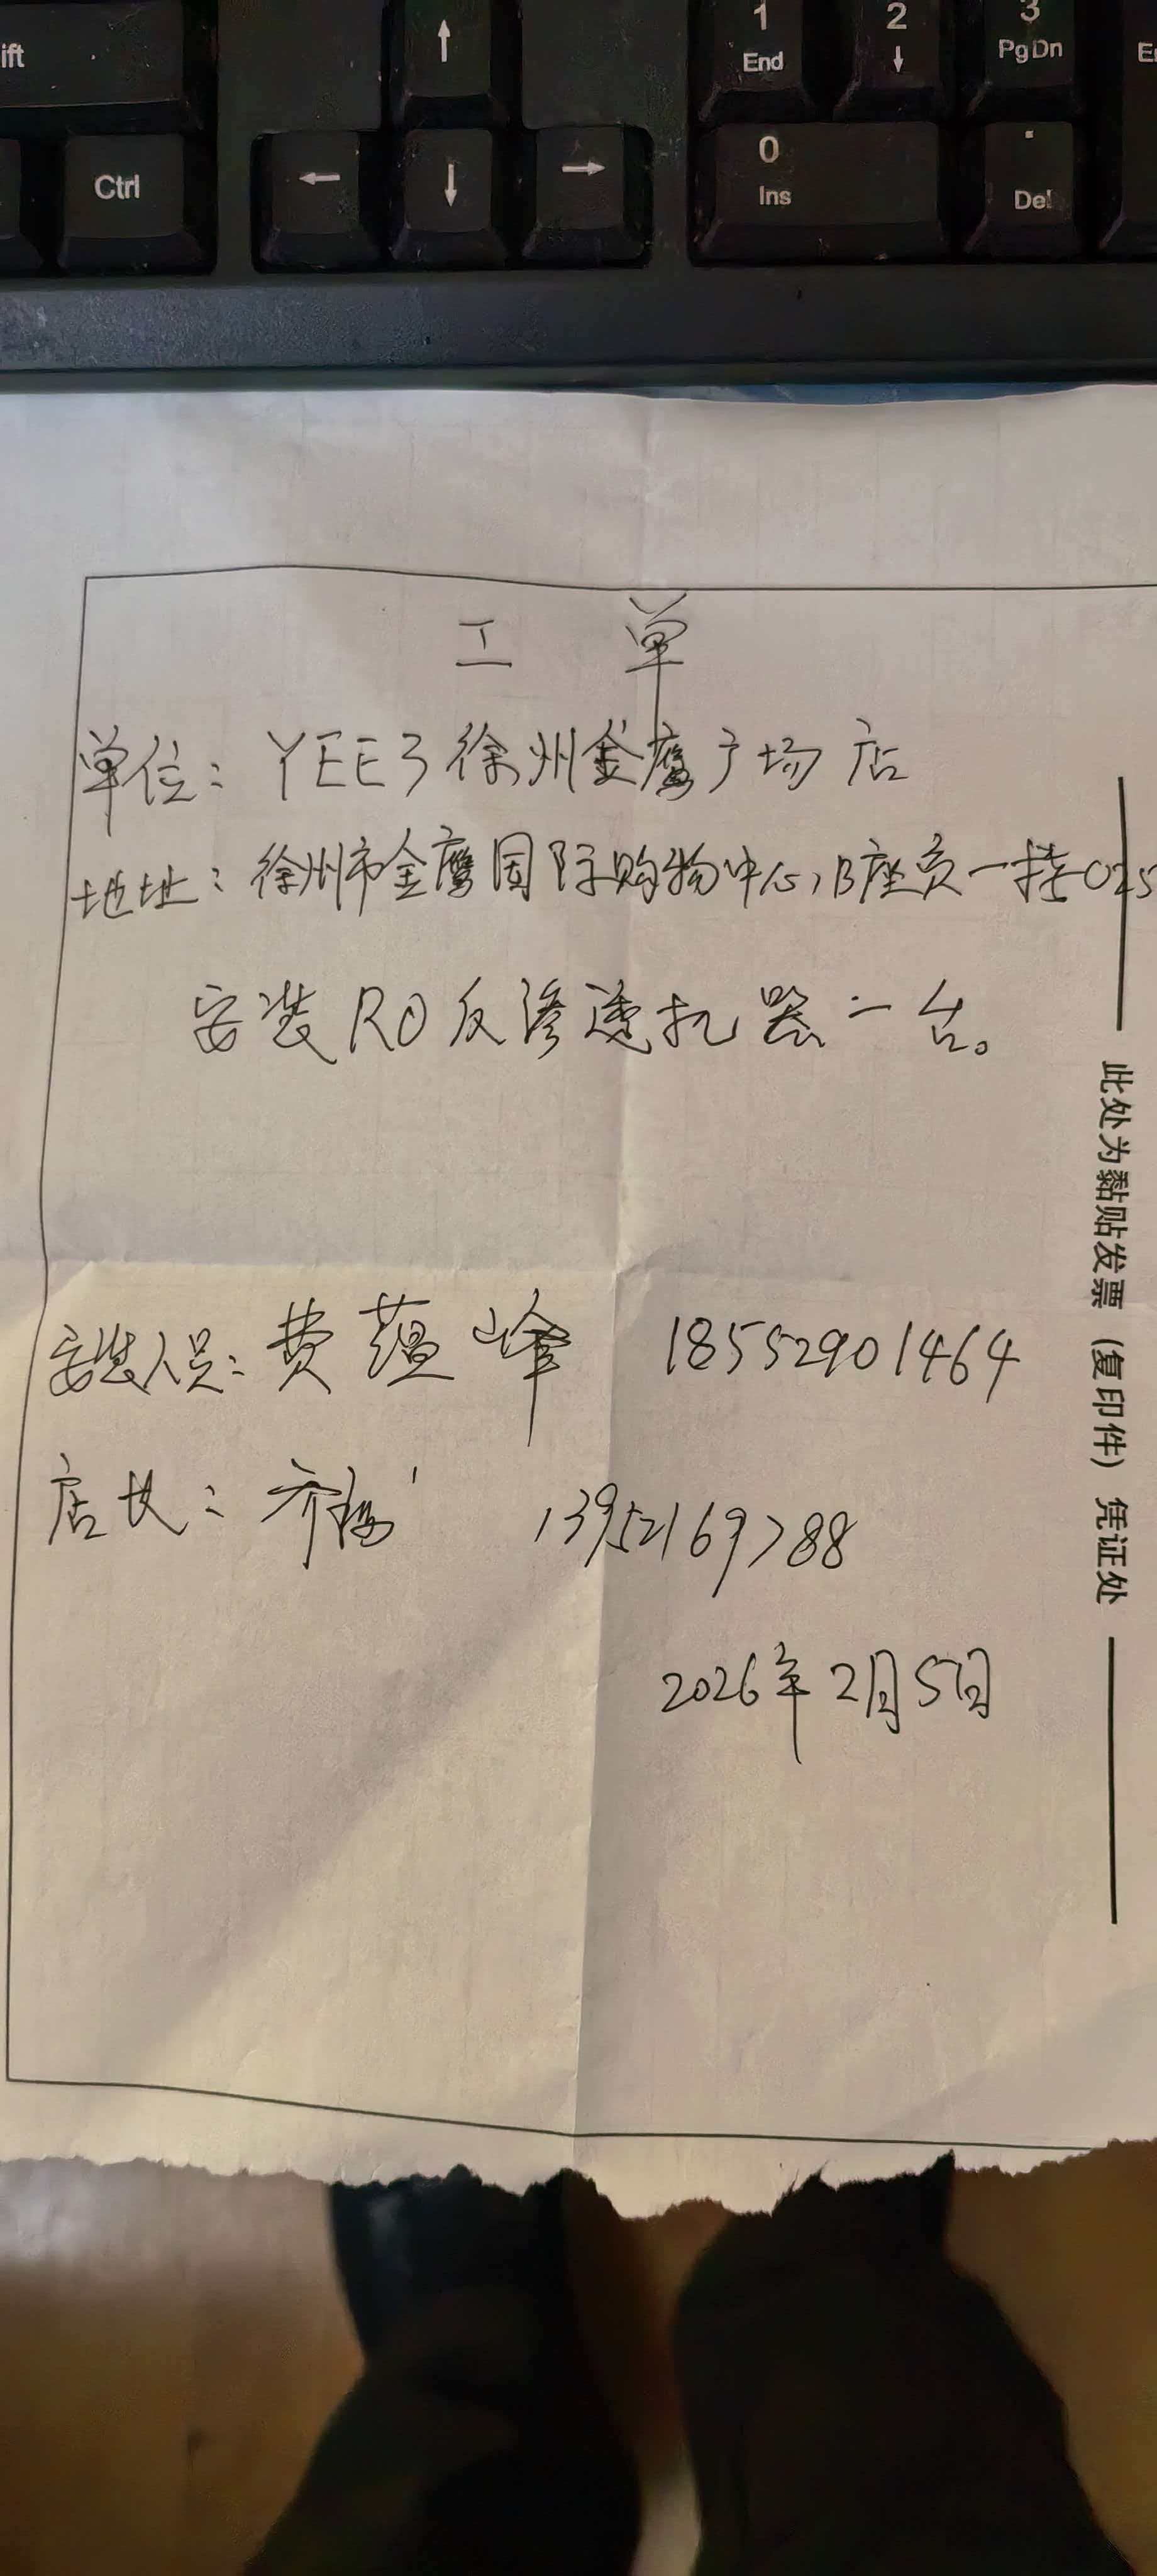 ift
Ctrl
↑
← ↓ →
1 End
2 ↓
3 PgDn
0 Ins
. Del
工 单
单位：YEE3徐州金鹰广场店
地址：徐州市金鹰国际购物中心，B座负一楼025
安装RO反渗透机器一台。
安装人员：费蕴峰 18552901464
店长：齐 13952169788
2026年2月5日
此处为黏贴发票（复印件）凭证处